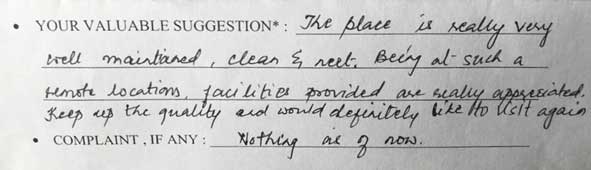 • YOUR VALUABLE SUGGESTION* : The place is really very
well maintained, clean & neet. Being at such a
remote locations, facilities provided are really appreciated.
Keep up the quality and would definitely like to visit again
• COMPLAINT, IF ANY : Nothing as of now.